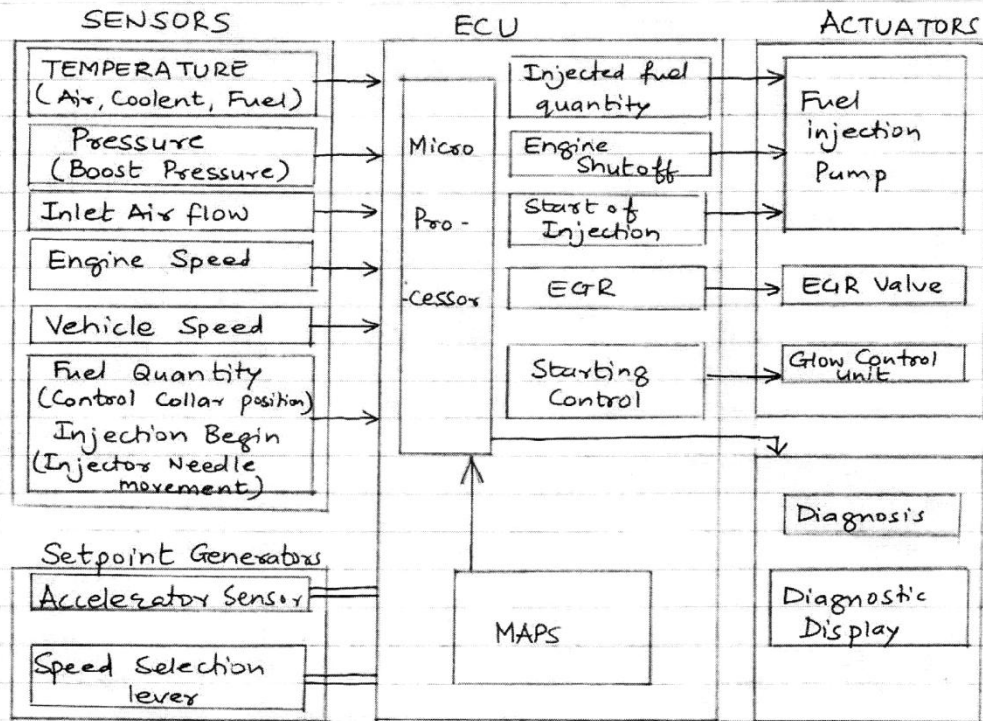 SENSORS
TEMPERATURE
(Air, Coolent, Fuel)
Pressure
(Boost Pressure)
Inlet Air flow
Engine Speed
Vehicle Speed
Fuel Quantity
(Control Collar position)
Injection Begin
(Injector Needle
movement)
Setpoint Generators
Accelerator Sensor
Speed Selection
lever
ECU
Micro
Pro-
-cessor
Injected fuel
quantity
Engine
Shutoff
Start of
Injection
EGR
Starting
Control
MAPS
ACTUATORS
Fuel
injection
Pump
EGR Valve
Glow Control
unit
Diagnosis
Diagnostic
Display